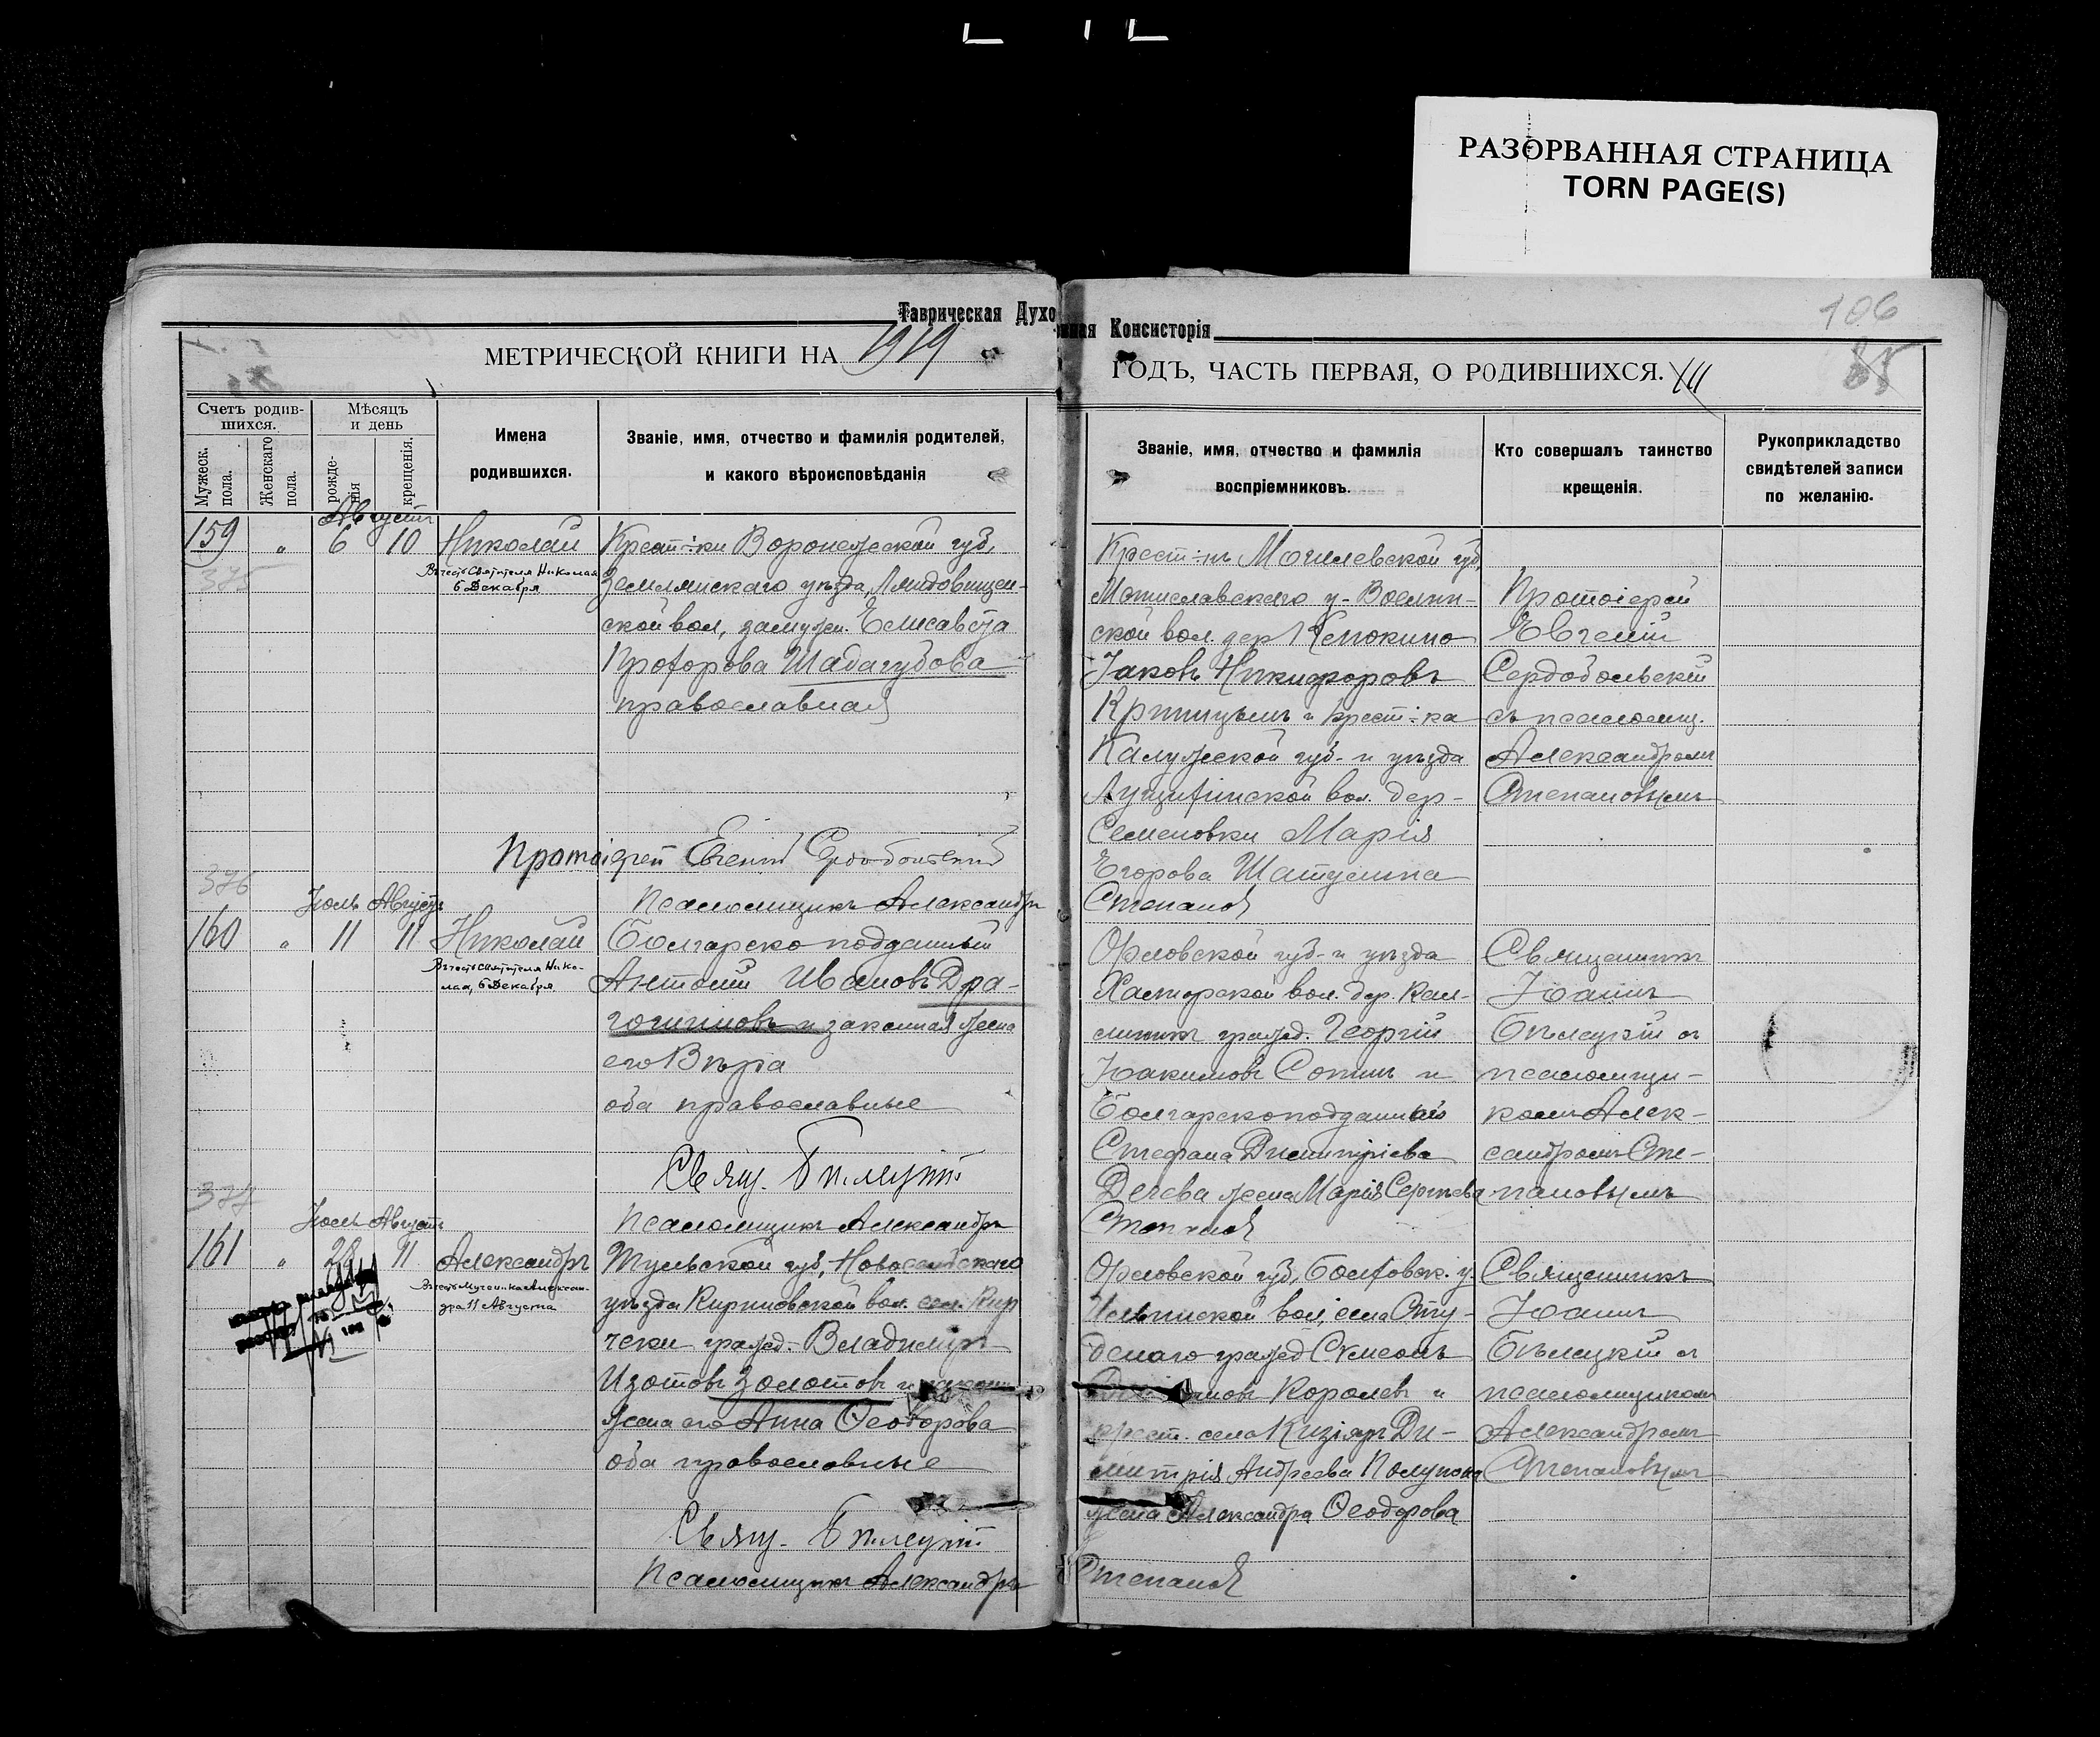 РАЗОРВАННАЯ СТРАНИЦА
TORN PAGE(S)
Таврическая Духовная Консисторія
106
МЕТРИЧЕСКОЙ КНИГИ НА 1919
ГОДЪ, ЧАСТЬ ПЕРВАЯ, О РОДИВШИХСЯ.
85
Счетъ родив-
шихся.
Мужеск.
пола.
Женскаго
пола.
Мѣсяцъ
и день
рожде-
нія
крещенія.
Имена
родившихся.
Званіе, имя, отчество и фамилія родителей,
и какого вѣроисповѣданія
Званіе, имя, отчество и фамилія
воспріемниковъ.
Кто совершалъ таинство
крещенія.
Рукоприкладство
свидѣтелей записи
по желанію.
Августъ
159 " 6 10 Николай
375
Въ честь Святителя Николая
6 Декабря
Крест-ки Воронежской губ,
Землянскаго уѣзда,
ской вол, замужн. Елисавета
Прохорова Шабагудова
православная
Протоіерей Евгений Сердобольский
Псаломщикъ Александръ
Крест-нъ Могилевской губ,
Мстиславскаго у-
ской вол. дер.
Іаковъ Никифоровъ
и крест-ка
Калужской губ- и уѣзда
вол. дер-
Семеновки Марія
Егорова
Степанов
Протоіерей
Евгеній
Сердобольскій
съ псаломщ.
Александромъ
Степановымъ
376
Іюль Августъ
160 " 11 11 Николай
Въ честь Святителя Нико-
лая, 6 Декабря
Болгарско подданный
Антоній Ивановъ Дра-
гошиновъ и законная жена
его Вѣра
оба православные
Свящ. Бѣлецкій
Псаломщикъ Александръ
Орловской губ- и уѣзда
вол. дер.
гражд. Георгій
Іоакимовъ и
Болгарскоподданный
Стефана Димитріева
Дечева жена Марія Сергѣева
Степанов
Священникъ
Іоаннъ
Бѣлецкій съ
псаломщи-
комъ Алек-
сандромъ Сте-
пановымъ
377
Іюль Августъ
161 " 28 11 Александръ
Въ честь Мученика Алексан-
дра 11 Августа
Тульской губ, Новосильскаго
уѣзда вол. сел.
гражд. Владиміръ
Изотовъ Золотовъ и
жена его Анна Ѳеодорова
оба православные
Свящ. Бѣлецкій
Псаломщикъ Александръ
Орловской губ, Болховск. у.
Ильинской вол, села Сту-
денаго гражд Сѵмеонъ
Королевъ и
крест. села Кизіяръ Ди-
митрія Андреева
жена Александра Ѳеодорова
Степанов
Священникъ
Іоаннъ
Бѣлецкій съ
псаломщикомъ
Александромъ
Степановымъ